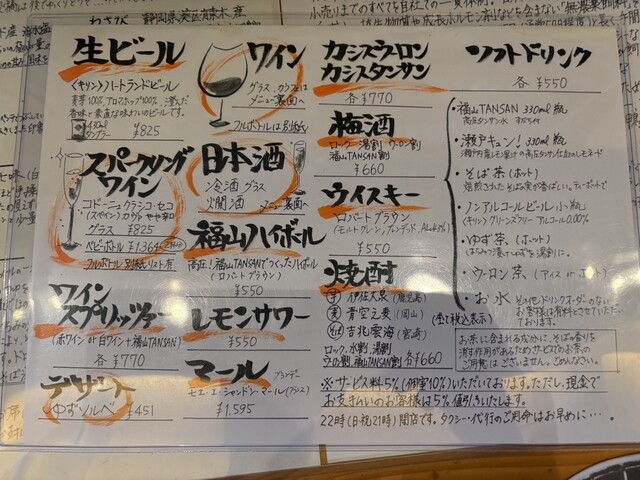 生ビール
<キリン>ハートランドビール
麦芽100% アロマホップ100% 澄んだ
香味と素直な味わいのビールです。
430ml
タンブラー
¥825
スパークリング
ワイン
コドーニュ クラシコ・セコ
(スペイン) カヴァ やや辛口
グラス ¥825
ベビーボトル ¥1,364
フルボトル 別紙リスト有
ワイン
スプリッツァー
(赤ワイン or 白ワイン+福山TANSAN)
各 ¥770
デザート
ゆずソルベ ¥451
ワイン
グラス、カラフェは
メニュー裏面へ
フルボトルは別紙
日本酒
冷酒 グラス
火燗酒
→メニュー裏面へ
福山ハイボール
高圧!福山TANSANでつくったハイボール
(ロバートブラウン)
¥550
レモンサワー
¥550
マール
ブランデー
モエ・エ・シャンドン・マール(フランス)
¥1,595
カシスウーロン
カシスタンサン
各 ¥770
梅酒
ロック・ソーダ割・湯割・ウーロン割
福山TANSAN割
¥660
ウイスキー
ロバートブラウン
(モルト,グレーン,ブレンデッド, ALC43%)
¥550
焼酎
芋 伊佐大泉 (鹿児島)
麦 青空之麦 (岡山)
そば 吉兆雲海 (宮崎)
ロック、水割、湯割
ウーロン割、福山TANSAN割
各¥660
ソフトドリンク
各 ¥550
・福山TANSAN 330ml瓶
高圧タンサン水
・瀬戸キュン! 330ml瓶
瀬戸内産レモン果汁の高圧タンサン仕立てのレモネード
・そば茶 (ホット)
焙煎されたそば実が香ばしい。ティーポットで
・ノンアルコールビール 小瓶
<キリン>グリーンズフリー アルコール0.00%
・ゆず茶、(ホット)
はちみつ漬けゆずを湯割りに。
・ウーロン茶 (アイス or ホット)
・お水
その他ドリンクオーダーのない
お客様は有料とさせていただいております。
(全て税込表示)
お茶に含まれる成分に、そばの香りを
消す作用があるためサービスでのお茶の
ご用意は ございません。ごめんなさい。
※サービス料5%(個室10%)いただいております。ただし、現金で
お支払いのお客様は5%値引きいたします。
22時(日・祝21時)閉店です。タクシー・代行のご用命はお早めに…